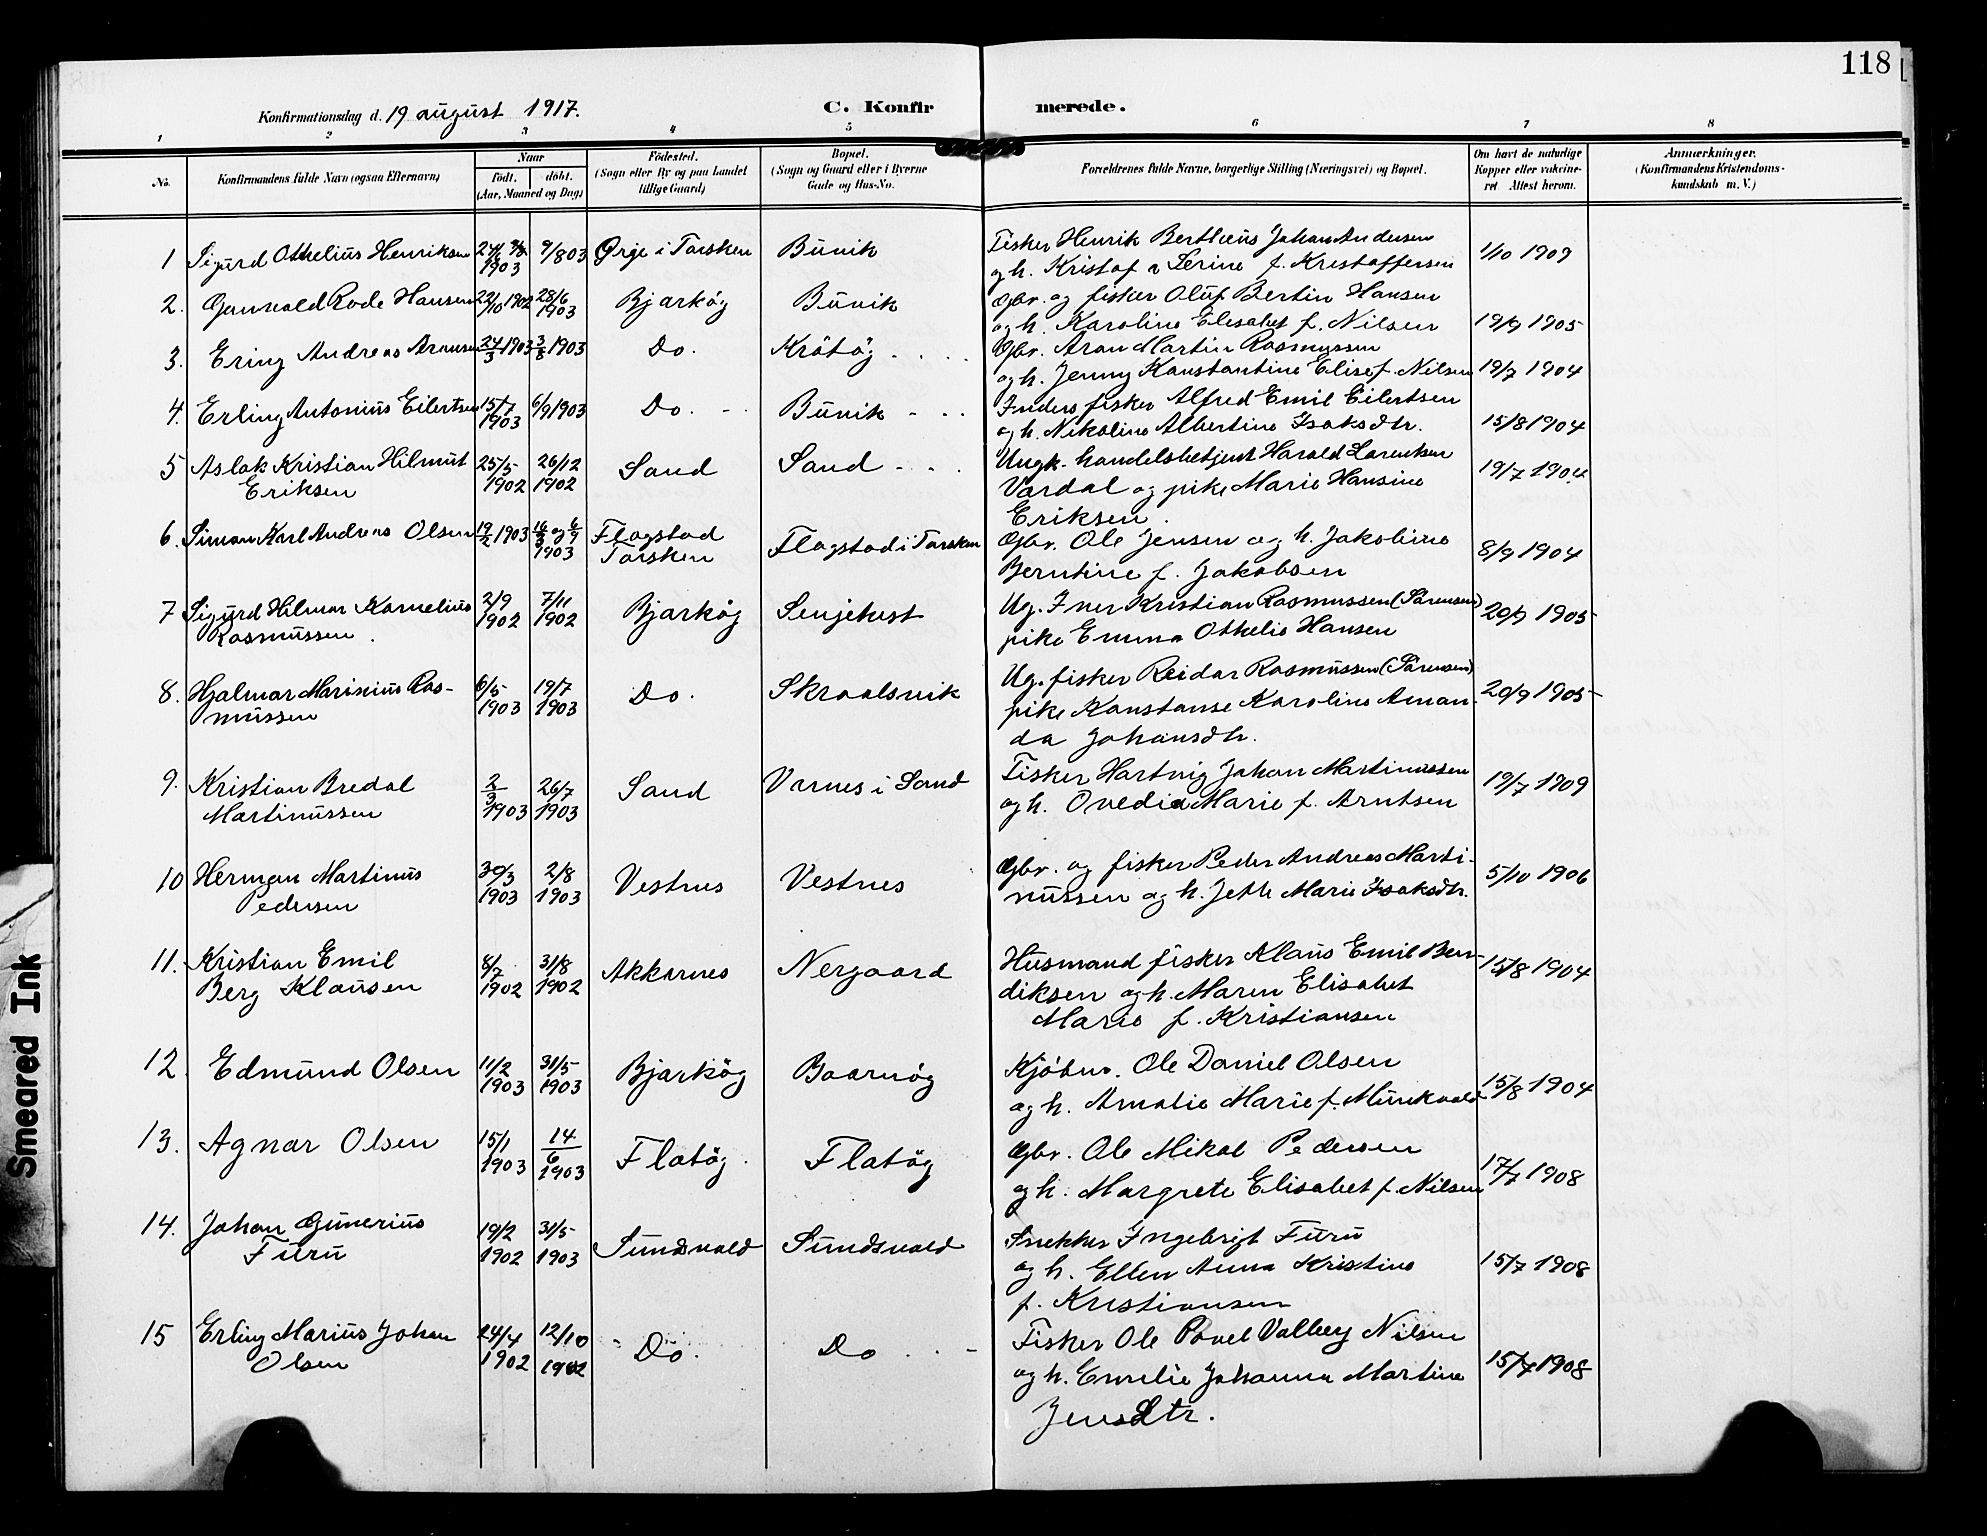 118
Konfirmationsdag d. 19 august 1917.
C. Konfir merede.
1 2 3 4 5 6 7 8
No.
Konfirmandens fulde Navn (ogsaa Efternavn)
Naar
Födt. döbt.
(Aar, Maaned og Dag)
Födested.
(Sogn eller By og paa Landet
tillige Gaard)
Bopæl.
(Sogn og Gaard eller i Byerne
Gade og Hus-No.
Forældrenes fulde Navne, borgerlige Stilling (Næringsvei) og Bopæl.
Om havt de naturlige
Kopper eller vakcine-
ret. Attest herom.
Anmærkninger.
(Konfirmandens Kristendoms-
kundskab m. V.)
1 Sigurd Othelius Henriksen 1903 9/8 03 i Torsken Buvik Fisker Henrik Bertheus Johan Andersen 1/10 1909
og h. Kristofa Serine f. Kristoffersen
2. Gunvald Rode Hansen 22/10 1902 28/6 1903 Bjarköy Buvik Gbr. og fisker Oluf Bertin Hansen
og h. Karoline Elisabet f. Nilsen 19/9 1905
3. Ering Andreas Aronsen 24/3 1903 3/8 1903 Do. Krötöy Gbr. Aron Martin Rasmussen
og h. Jenny Konstantine Elise f. Nilsen 19/7 1904
4. Erling Antonius Eilertsen 15/7 1903 6/9 1903 Do. Buvik Inders fisker Alfred Emil Eilertsen
og h. Nikoline Albertine Isaksdtr. 15/8 1904
5 Aslak Kristian Hilmut 25/5 1902 26/12 1902 Sand Sand Ungk. handelsbetjent Harald Lorentsen 19/7 1904
Eriksen Vardal og pike Marie Hansine
Eriksen.
6. Simon Karl Andreas Olsen 19/2 1903 16/3 og 6/9 1903 Flagstad Flagstad i Torsken Gbr. Ole Jensen og h. Jakobine 8/9 1904
Torsken Berntine f. Jakobsen
7 Sigurd Hilmar Kornelius 2/9 1902 7/11 1902 Bjarköy Senjehest Ug. Kristian Rasmussen (Sörensen) 20/9 1905
Rasmussen. pike Emma Othelie Hansen
8. Hjalmar Marinius Ras- 6/5 1903 19/7 1903 Do. Skroalsvik Ug. fisker Reidar Rasmussen (Sörensen) 20/9 1905
mussen pike Konstanse Karoline Aman-
da Johansdtr.
9. Kristian Bredal 2/3 1903 26/7 1903 Sand Varnes i Sand Fisker Hartvig Johan Martinussen 19/7 1909
Martinussen og h. Ovedia Marie f. Arntsen
10 Herman Martinus 30/3 1903 2/8 1903 Vestnes Vestnes Gbr. og fisker Peder Andreas Marti- 5/10 1906
Pedersen nussen og h. Jette Marie Isaksdtr.
11. Kristian Emil 8/7 1902 31/8 1902 Akkarnes Nergaard Husmand fisker Klaus Emil Ben- 15/8 1904
Berg Klausen diksen og h. Maren Elisabet
Marie f. Kristiansen
12. Edmund Olsen 11/2 1903 31/5 1903 Bjarköy Baarnöy Kjöbm. Ole Daniel Olsen
og h. Amalie Marie f. Munkvold 15/8 1904
13. Agnar Olsen 15/1 1903 14/6 1903 Flatöy. Flatöy Gbr. Ole Mikal Pedersen
og h. Margrete Elisabet f. Nilsen 17/7 1908
14. Johan Gunerius 19/2 1902 31/5 1903 Sundsvold Sundsvold Snekker Ingebrigt Furu
Furu og h. Ellen Anna Kristine 15/7 1908
f. Kristiansen
15 Erling Marius Johan 24/4 1902 12/10 1902 Do. Do Fisker Ole Povel Valberg Nilsen
Olsen og h. Emilie Johanna Martine 15/7 1908
Jensdtr.
Smeared Ink